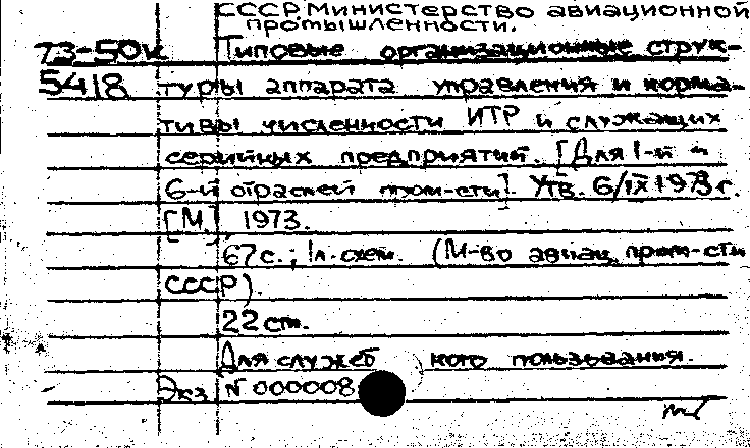 СССР. Министерство авиационной
промышленности.
73-50к Типовые организационные струк-
5418 туры аппарата управления и норма-
тивы численности ИТР и служащих
серийных предприятий. [Для 1-й и
6-й отраслей пром-сти]. Утв. 6/IX 1973 г.
[М.], 1973.
67 с.; 1 л. схем. (М-во авиац. пром-сти
СССР).
22 см.
Для служеб ного пользования.
Экз. № 000008